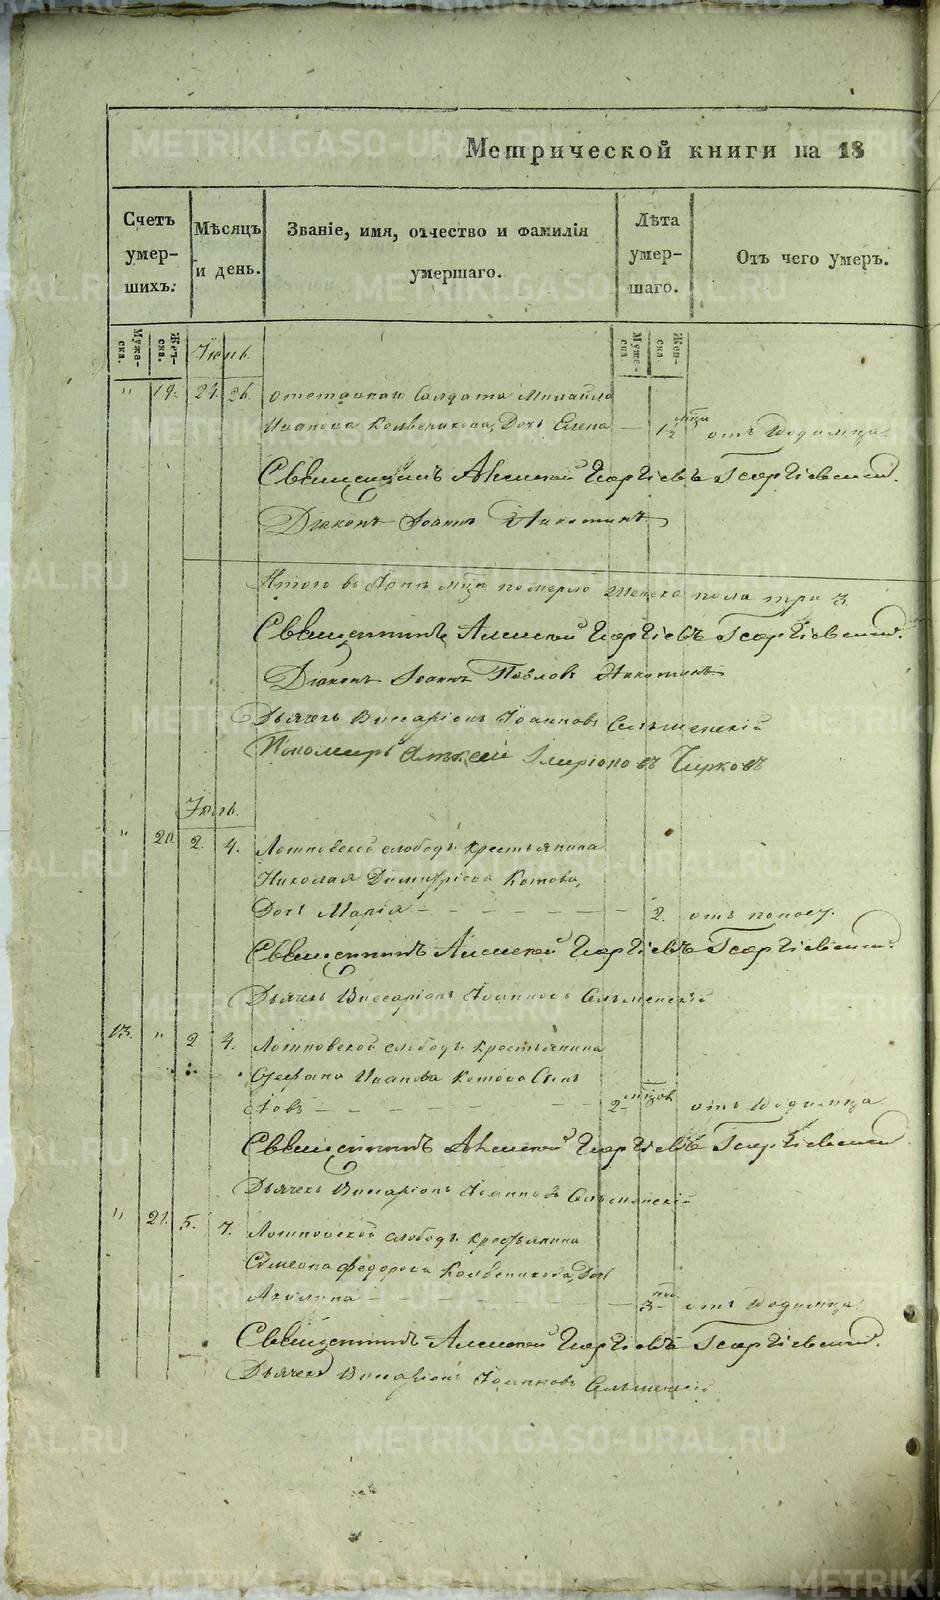 Метрической книги на 18
Счетъ умер- шихъ.
Мѣсяцъ и день.
Званіе, имя, отчество и фамилія умершаго.
Лѣта умер- шаго.
Отъ чего умеръ.
Муже- ска.
Жен- ска.
Муже- ска.
Жен- ска.
Іюнь.
" 19. 24. 26. Солдата Михайла
Иванова Дочь Елена — 1½ мца отъ Родимца.
Священникъ Алексей Георгіевъ Георгіевский.
Діаконъ Іоаннъ Никитинъ
Итого въ Іюнѣ мцѣ померло Женска пола три 3.
Священникъ Алексей Георгіевъ Георгіевский.
Діаконъ Іоаннъ Павловъ Никитинъ
Дьячекъ Виссаріонъ Іоанновъ
Пономарь Алексей Иларіоновъ Чирковъ
Іюль.
" 20. 2. 4. слободы крестьянина
Николая Димитріева Котова,
Дочь Марія — — — — 2. отъ поносу.
Священникъ Алексей Георгіевъ Георгіевский.
Дьячекъ Виссаріонъ Іоанновъ
13. " 2 4. слободы крестьянина
Стефана Иванова Котова Сынъ
Іовъ — — — — 2 мцовъ отъ Родимца.
Священникъ Алексей Георгіевъ Георгіевский.
Дьячекъ Виссаріонъ Іоанновъ
" 21. 5. 7. слободы крестьянина
Симеона Федорова Дочь
Акилина — — — — 3 отъ Родимца.
Священникъ Алексей Георгіевъ Георгіевский.
Дьячекъ Виссаріонъ Іоанновъ
METRIKI.GASO-URAL.RU